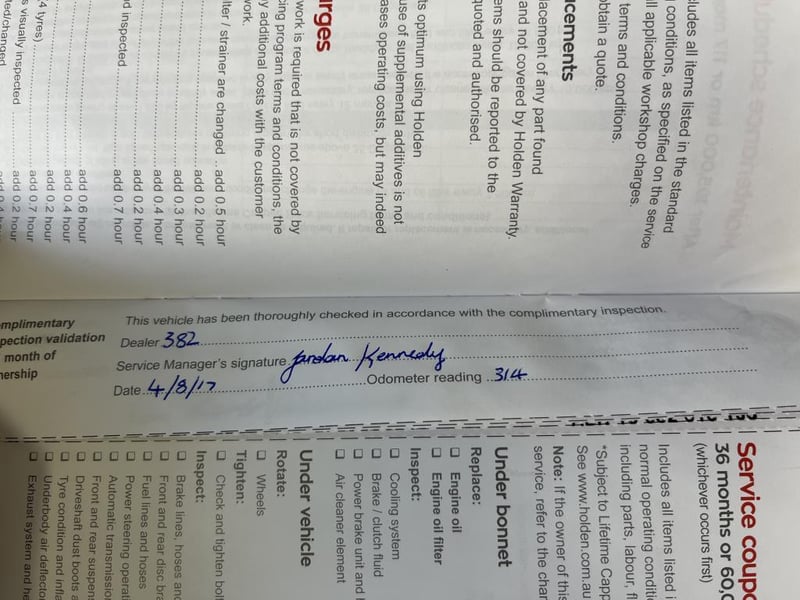 cludes all items listed in the standard
conditions, as specified on the service
ll applicable workshop charges.
terms and conditions.
btain a quote.
cements
lacement of any part found
and not covered by Holden Warranty.
ems should be reported to the
quoted and authorised.
ts optimum using Holden
use of supplemental additives is not
ases operating costs, but may indeed
arges
work is required that is not covered by
cing program terms and conditions, the
y additional costs with the customer
work.
lter / strainer are changed ...add 0.5 hour
add 0.2 hour
add 0.3 hour
add 0.4 hour
add 0.2 hour
d inspected ... add 0.7 hour
add 0.6 hour
(4 tyres) ... add 0.4 hour
add 0.2 hour
add 0.7 hour
s visually inspected ... add 0.2 hour
ted/changed
mplimentary
pection validation
month of
nership
This vehicle has been thoroughly checked in accordance with the complimentary inspection.
Dealer 382
Service Manager's signature Jordan Kennedy
Date 4/8/17 Odometer reading 314
Service coupo
36 months or 60,0
(whichever occurs first)
Includes all items listed i
normal operating conditi
including parts, labour, fl
*Subject to Lifetime Capp
See www.holden.com.au
Note: If the owner of this
service, refer to the char
Under bonnet
Replace:
❏ Engine oil
❏ Engine oil filter
Inspect:
❏ Cooling system
❏ Brake / clutch fluid
❏ Power brake unit and
❏ Air cleaner element
Under vehicle
Rotate:
❏ Wheels
Tighten:
❏ Check and tighten bolt
Inspect:
❏ Brake lines, hoses and
❏ Front and rear disc bra
❏ Fuel lines and hoses
❏ Power steering operati
❏ Automatic transmission
❏ Front and rear suspens
❏ Driveshaft dust boots a
❏ Tyre condition and infla
❏ Underbody air deflector
❏ Exhaust system and he